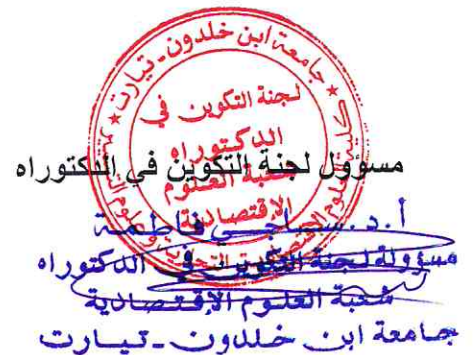 جامعة ابن خلدون - تيارت
لجنة التكوين في
الدكتوراه
شعبة العلوم
الاقتصادية
مسؤول لجنة التكوين في الدكتوراه
أ.د. فاطمة
مسؤولة لجنة التكوين في الدكتوراه
شعبة العلوم الاقتصادية
جامعة ابن خلدون - تيارت